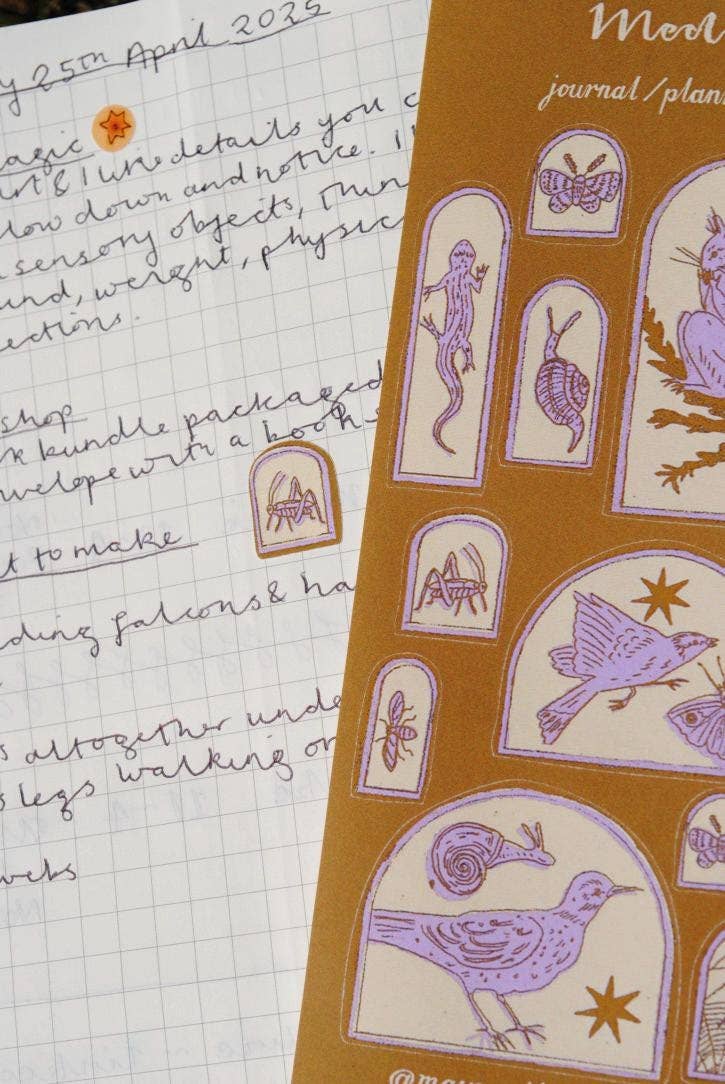 25th April 2025
art & I like details you
slow down and notice.
sensory objects,
weight, physic
ections.
shop
packaged
envelope with a book
t to make
ding falcons & ha
s altogether unde
s legs walking or
Med
journal/plan